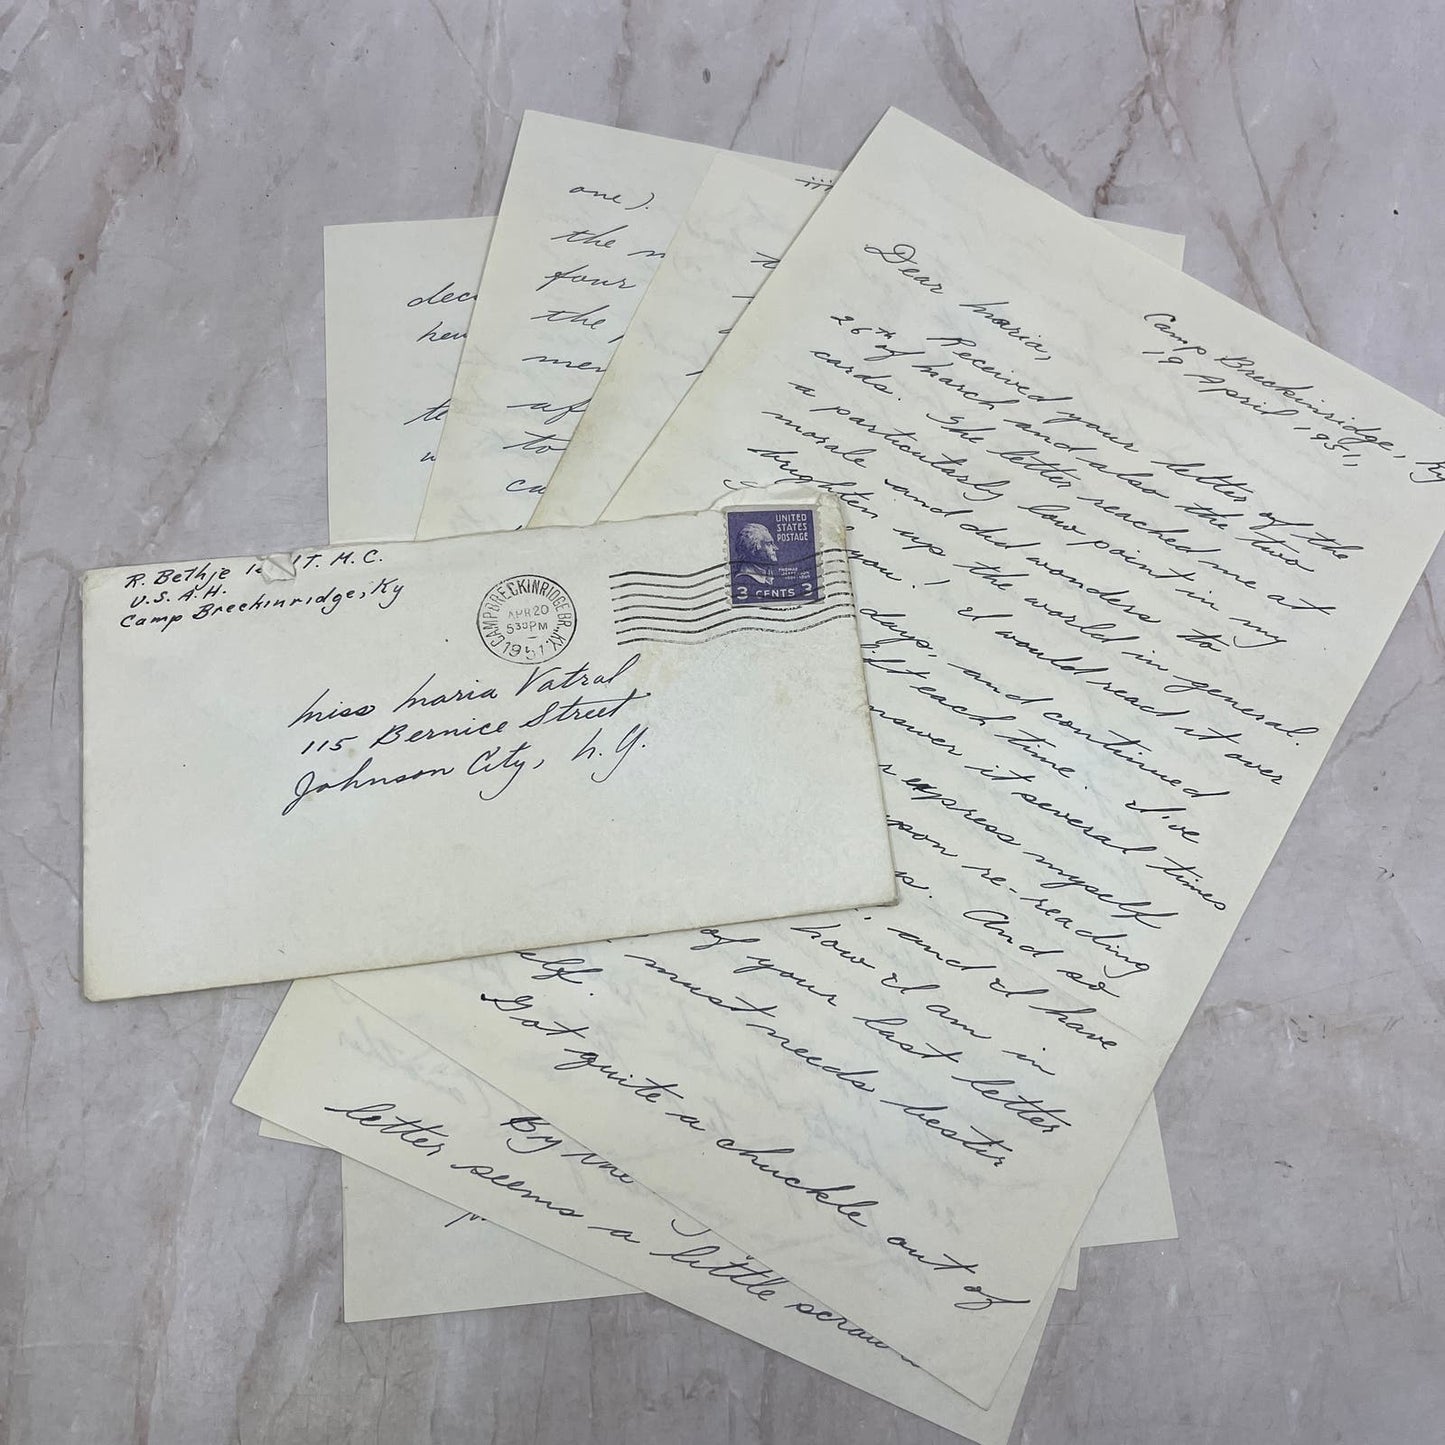 R. Bethje 1st LT. M.C.
U.S.A.H.
Camp Breckinridge, Ky
CAMP BRECKINRIDGE BR., KY.
APR 20
530 PM
1951
UNITED
STATES
POSTAGE
3 CENTS 3
Miss Maria Vatral
115 Bernice Street
Johnson City, N.Y.
Camp Breckinridge, Ky
19 April, 1951,
Dear Maria,
Received your letter of the
26th of March and also the two
cards. The letter reached me at
a particularly low point in my
morale and did wonders to
brighten up the world in general.
you! I would read it over
days, and continued
lift each time. I've
answer it several times
express myself
upon re-reading
And so
and I have
how I am in
of your last letter
must needs bestir
elf.
Got quite a chuckle out of
one).
the
four
the
men
af
to
iii
dec
te
By
letter seems a little scraw